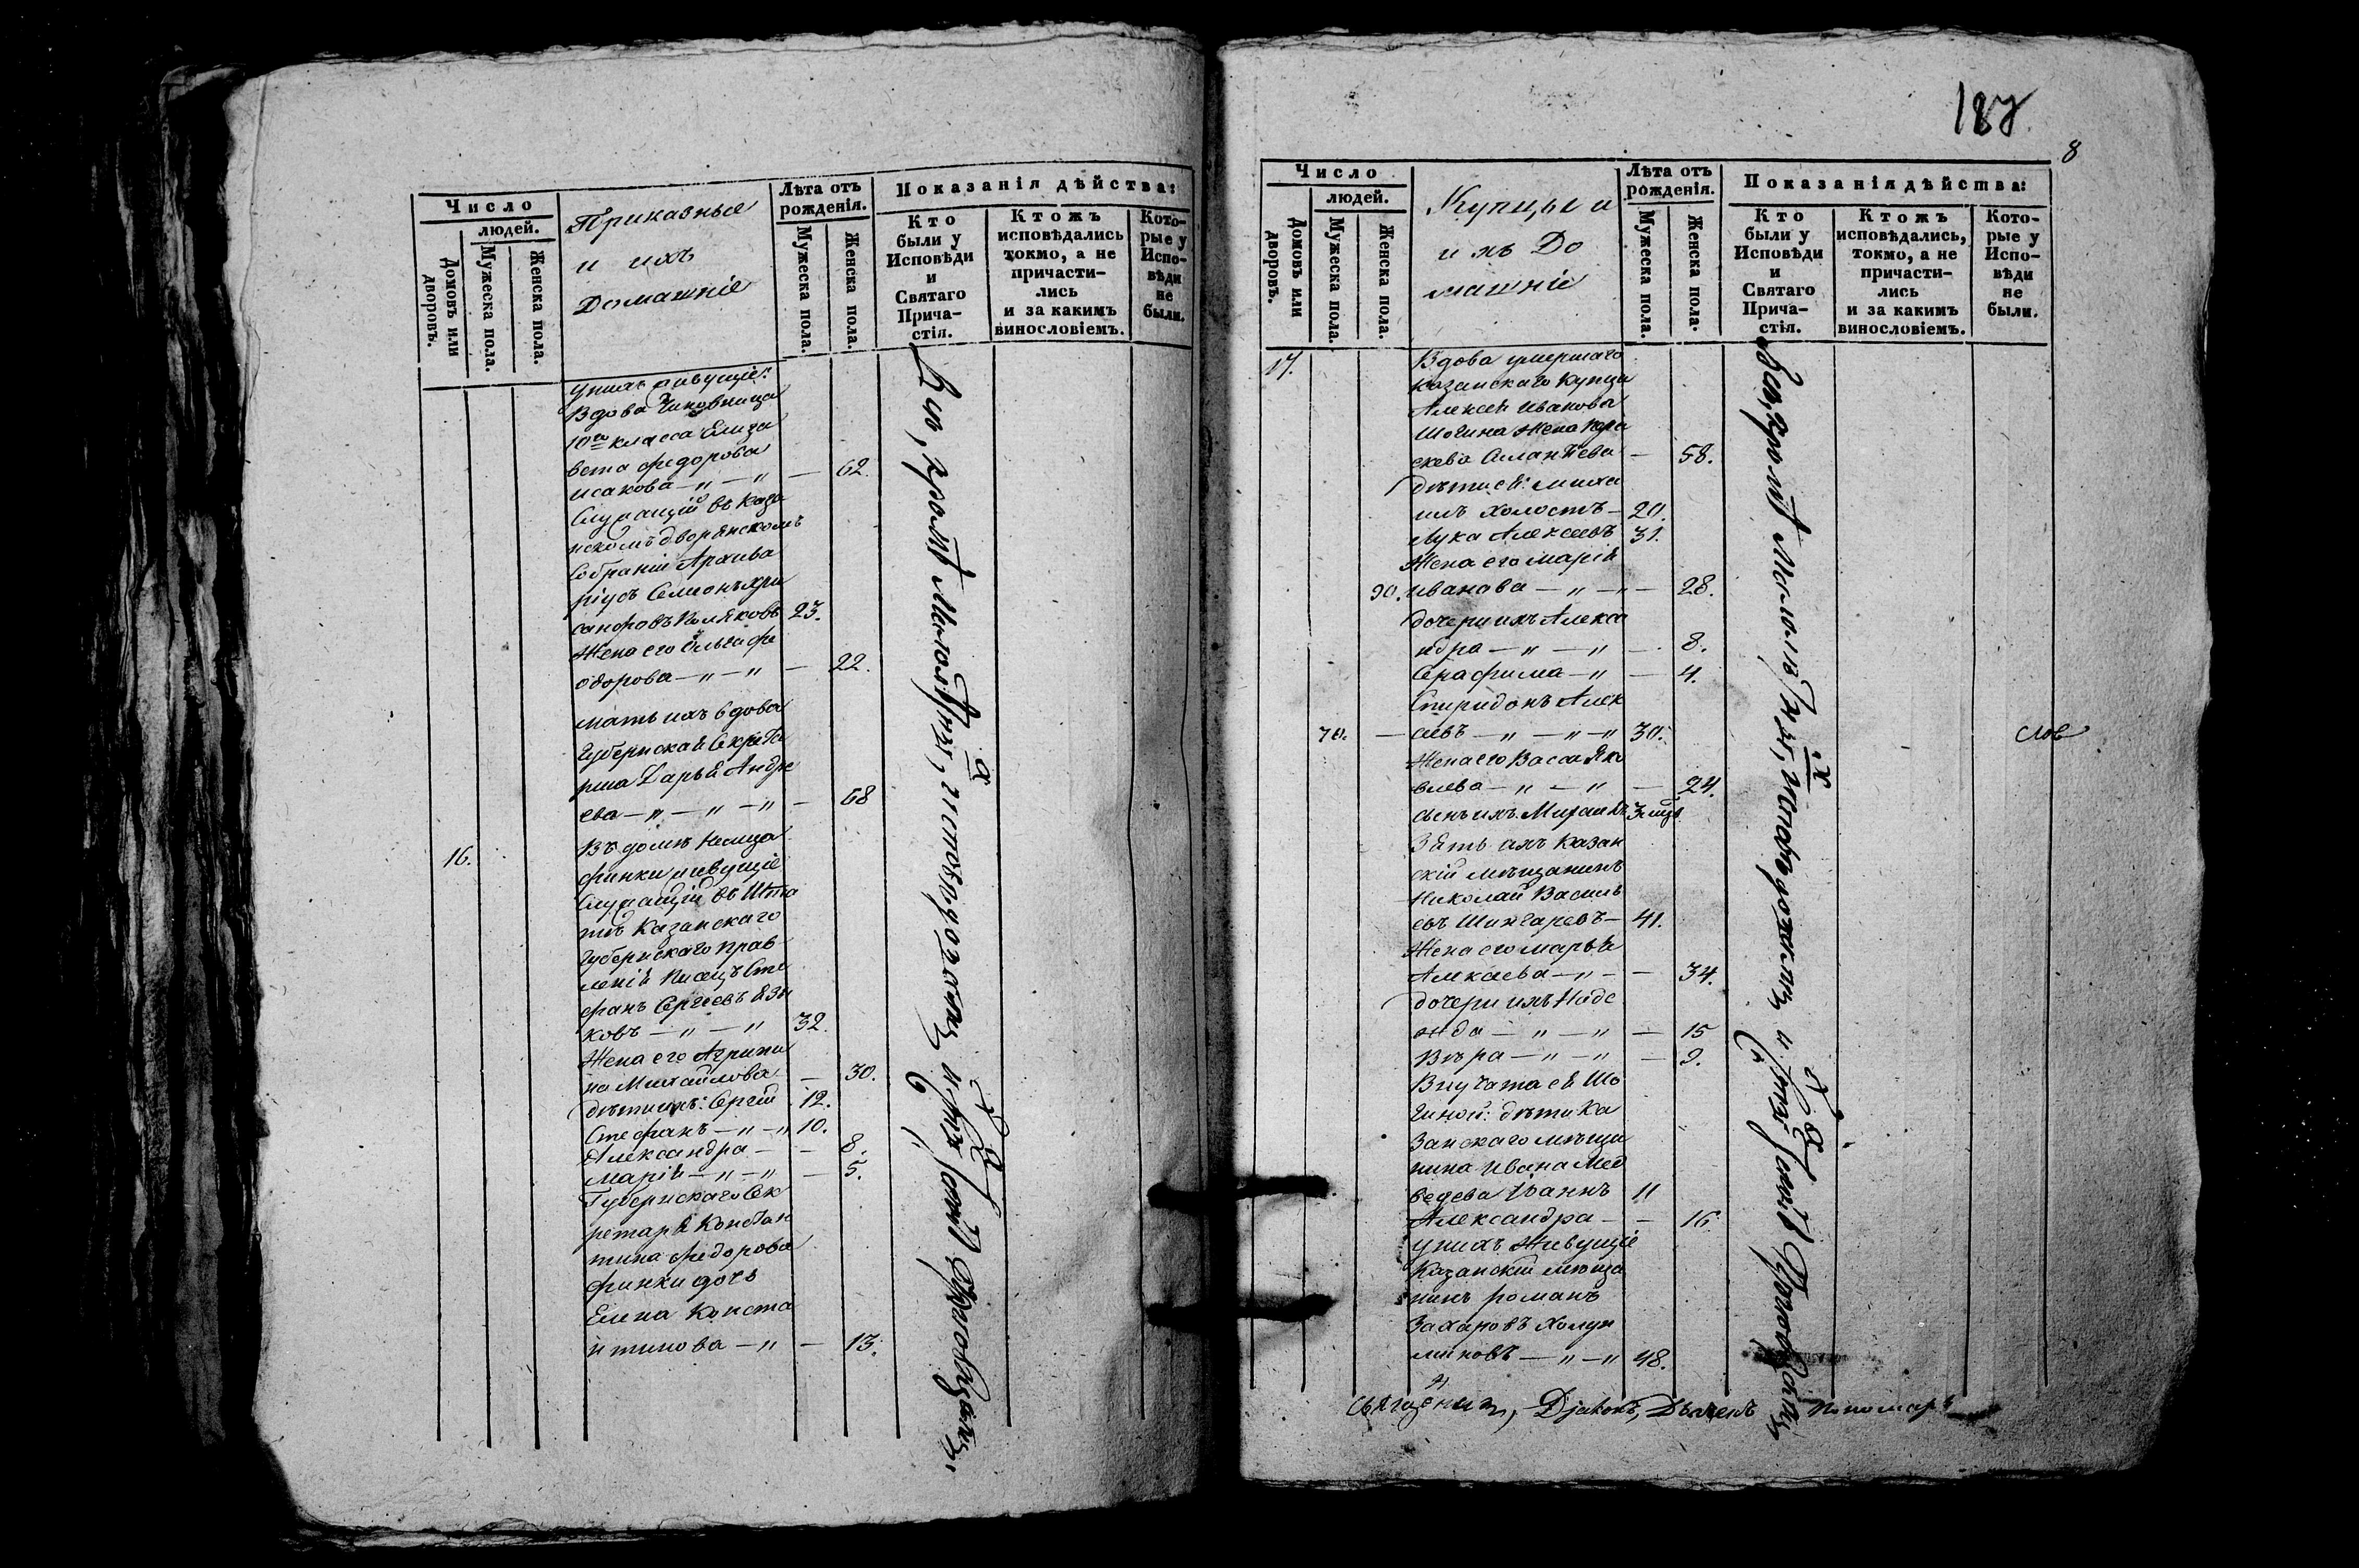 Число
людей.
Домовъ или дворовъ.
Мужеска пола.
Женска пола.
Приказные
и ихъ
Домашніе
Лѣта отъ рожденія.
Мужеска пола.
Женска пола.
Показанія дѣйства:
Кто были у Исповѣди и Святаго Прича-стія.
Ктожъ исповѣдались токмо, а не причасти-лись и за какимъ винословіемъ.
Кото-рые у Испо-вѣди не были.
у нихъ живущіе:
Вдова Чиновница
10го класса Елиза
вета Федорова
Исакова — „ — „ — 62.
Служащій въ Каза
нскомъ дворянскомъ
Собраніи Архива
ріусъ Семионъ
23.
Жена его Ольга Фе
одорова — „ — „ — 22.
мать ихъ вдова
Губернская Секрета
рша Дарья Андре
ева — „ — „ — „ — 68
16. Въ домѣ Немца
Финки живущіе
Служащій въ Шта
тѣ Казанскаго
Губернскаго прав
ленія Писецъ Сте
фанъ Сергеевъ Язы
ковъ — „ — „ 32.
Жена его Агрипи
на Михайлова — 30.
дѣти ихъ: Сергій 12.
Стефанъ — „ — „ 10.
Александра — — 8.
Марія — „ — „ — 5.
Губернскаго Сек
ретаря Констан
тина Федорова
Финки дочь
Елена Конста
нтинова — „ — 13.
Всѣ, кромѣ Малолѣтнихъ, исповѣдованы и
187
8
Число
людей.
Домовъ или дворовъ.
Мужеска пола.
Женска пола.
Купцы и
ихъ До
машніе
Лѣта отъ рожденія.
Мужеска пола.
Женска пола.
Показанія дѣйства:
Кто были у Исповѣди и Святаго Прича-стія.
Ктожъ исповѣдались, токмо, а не причасти-лись и за какимъ винословіемъ.
Кото-рые у Испо-вѣди не были.
17. Вдова умершаго
Казанскаго Купца
Алексея Иванова
Шогина Жена Пара
скева — 58.
дѣти ея: Миха
илъ холостъ — 20.
Лука Алексеевъ 31.
Жена его Марія
90. Иванова — „ — „ — 28.
дочери ихъ Алекса
ндра — „ — „ — 8.
Серафима — „ — 4.
Спиридонъ Алек
сеевъ — „ — „ — „ 30.
слов
Жена его Васса Яко
влева — „ — „ — 24.
сынъ ихъ Михаилъ
Зять ихъ Казан
скій мѣщанинъ
Николай Василь
евъ Шингаревъ — 41.
Жена его Марья
Алексеева — „ — — 34.
дочери ихъ Наде
жда — „ — „ — 15
Вѣра — „ — „ — 9.
Внучата ея Шо
гиной: дѣти Ка
занскаго мѣща
нина Ивана Мед
ведева Іоаннъ 11
Александра — — 16.
у нихъ Живущіе
Казанскій мѣща
нинъ Романъ
Захаровъ
48.
Всѣ, кромѣ Малолѣтнихъ, исповѣдованы и
Священникъ, Діаконъ, Дьячекъ Пономарь